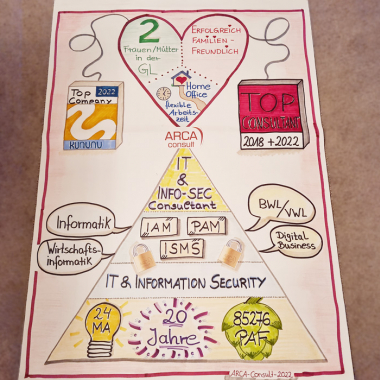 2
Frauen/Mütter
in der
GL
ERFOLGREICH
FAMILIEN-
FREUNDLICH
Home
Office
flexible
Arbeits-
zeit
Top
Company
2022
KUNUNU
TOP
CONSULTANT
2018 + 2022
ARCA
consult
IT
&
INFO-SEC
Consultant
IAM PAM
ISMS
Informatik
Wirtschafts-
informatik
BWL/
VWL
Digital
Business
IT & INFORMATION SECURITY
24
MA
20
Jahre
85276
PAF
ARCA-Consult-2022